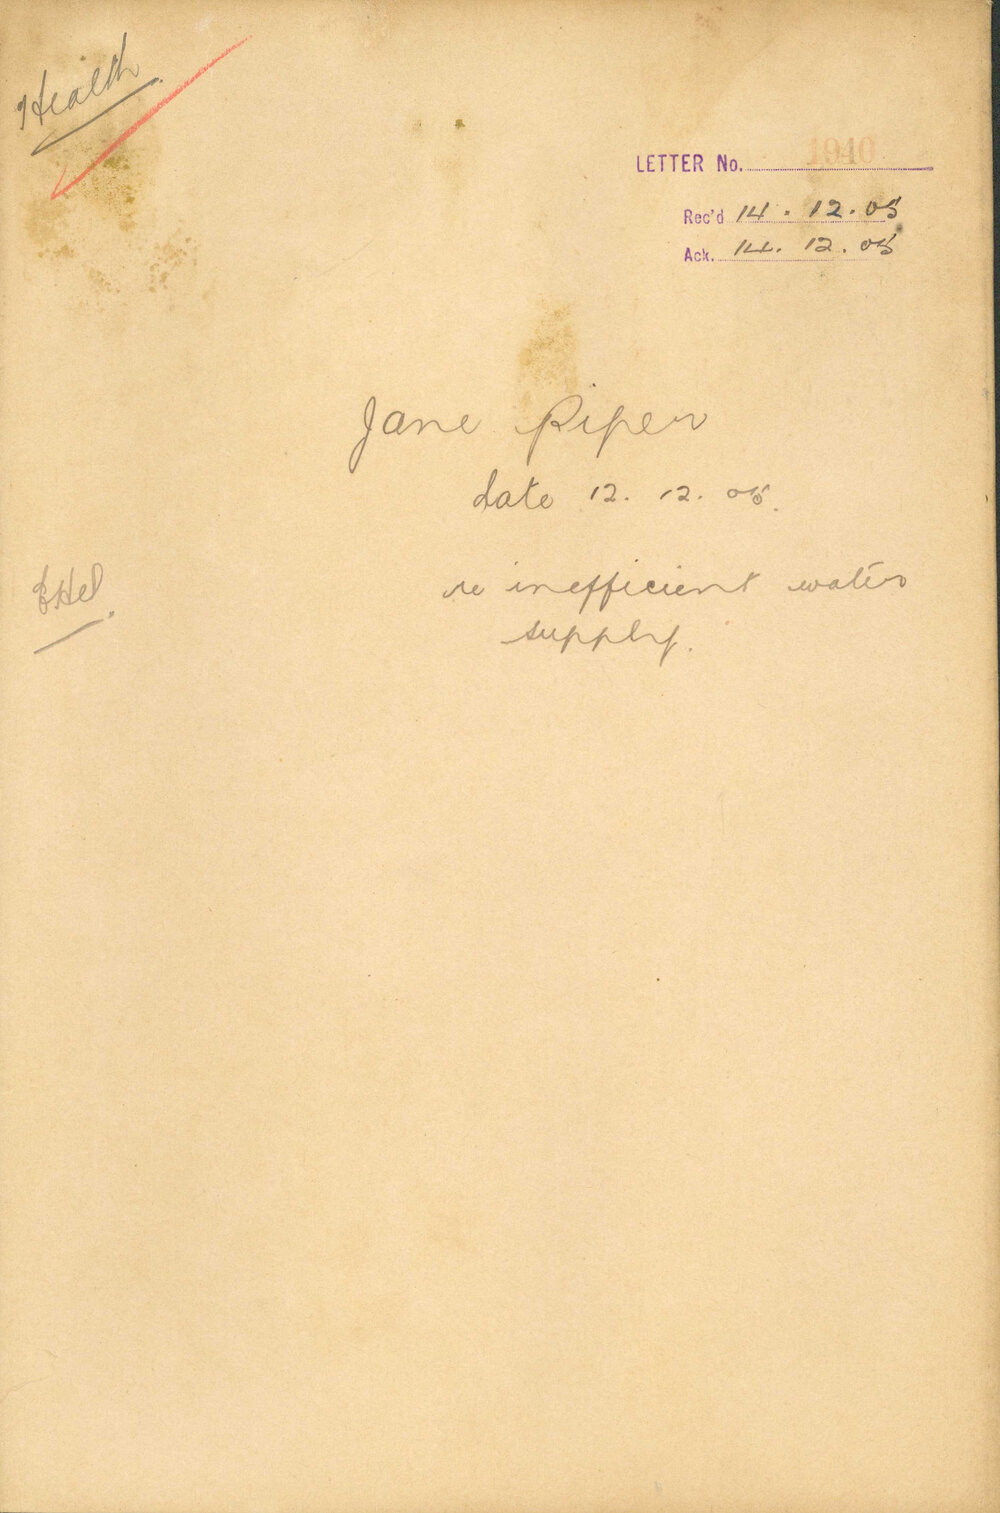 Health.
LETTER No. 1940
Rec'd 14. 12. 05
Ack. 14. 12. 05
Jane Piper
date 12. 12. 05.
re inefficient water
supply.